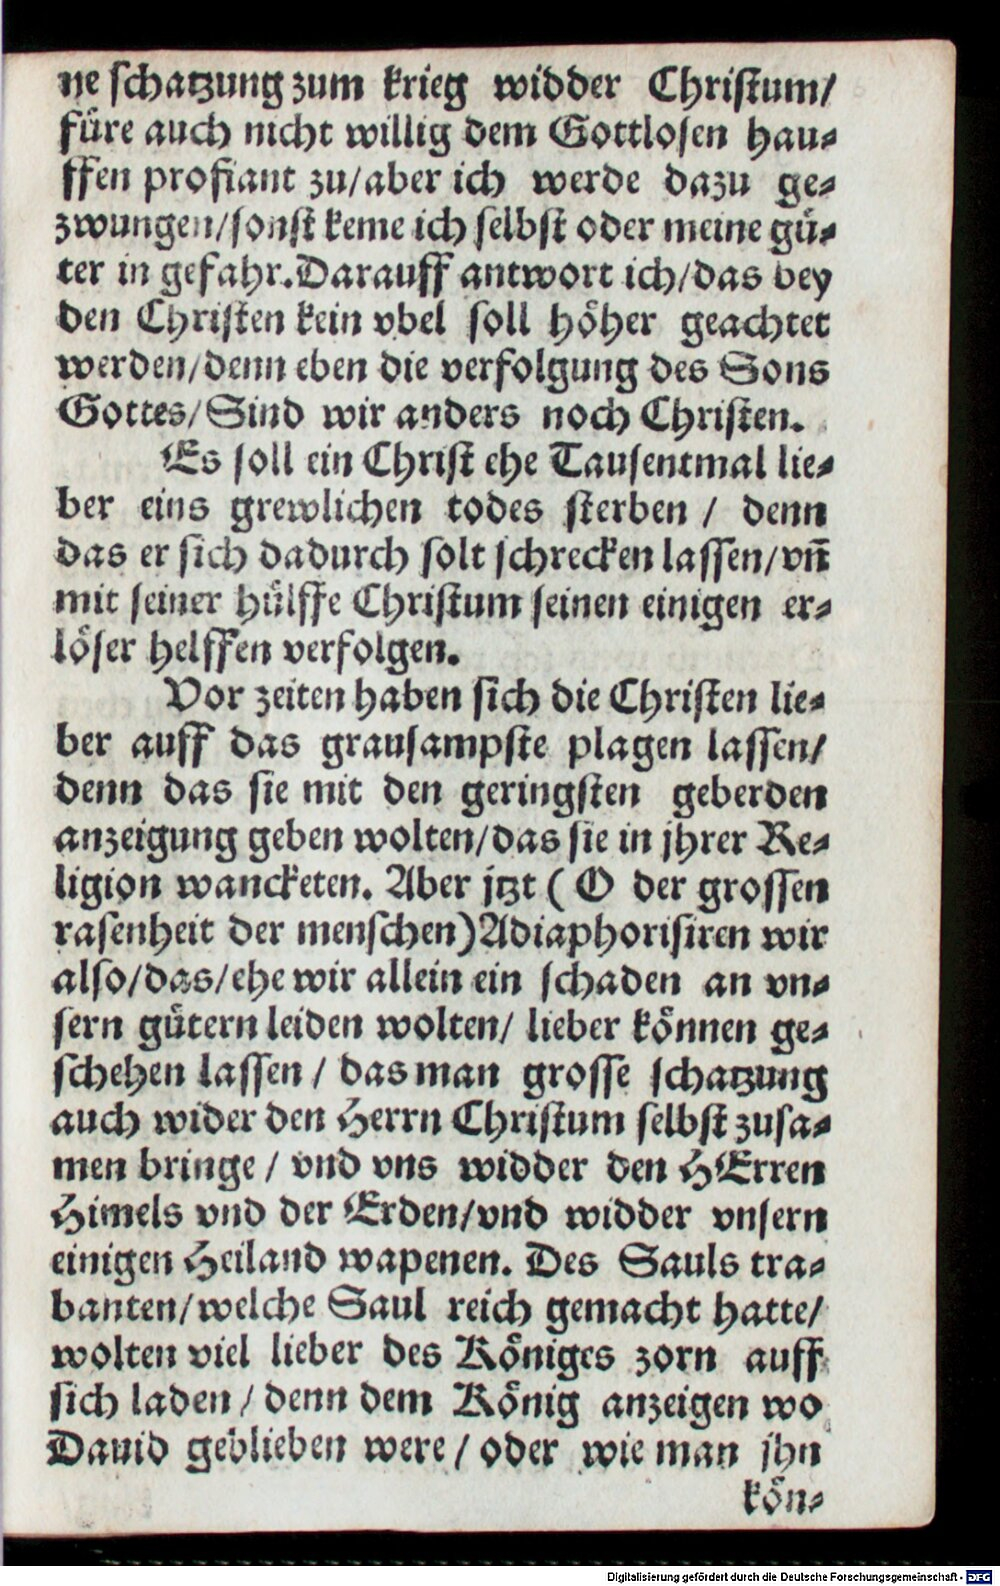 ne schatzung zum krieg widder Christum/
füre auch nicht willig dem Gottlosen hau⸗
ffen profiant zu/aber ich werde dazu ge⸗
zwungen/sonst keme ich selbst oder meine gü⸗
ter in gefahr.Darauff antwort ich/das bey
den Christen kein vbel soll höher geachtet
werden/denn eben die verfolgung des Sons
Gottes/Sind wir anders noch Christen.
Es soll ein Christ ehe Tausentmal lie⸗
ber eins grewlichen todes sterben / denn
das er sich dadurch solt schrecken lassen/vñ
mit seiner hülffe Christum seinen einigen er⸗
löser helffen verfolgen.
Vor zeiten haben sich die Christen lie⸗
ber auff das grausampste plagen lassen/
denn das sie mit den geringsten geberden
anzeigung geben wolten/das sie in jhrer Re⸗
ligion wancketen. Aber jtzt ( O der grossen
rasenheit der menschen)Adiaphorisiren wir
also/das/ehe wir allein ein schaden an vn⸗
sern gütern leiden wolten/ lieber können ge⸗
schehen lassen / das man grosse schatzung
auch wider den Herrn Christum selbst zusa⸗
men bringe / vnd vns widder den HErren
Himels vnd der Erden/vnd widder vnsern
einigen Heiland wapenen. Des Sauls tra⸗
banten/welche Saul reich gemacht hatte/
wolten viel lieber des Königes zorn auff
sich laden / denn dem König anzeigen wo
Dauid geblieben were / oder wie man jhn
kön⸗
Digitalisierung gefördert durch die Deutsche Forschungsgemeinschaft - DFG